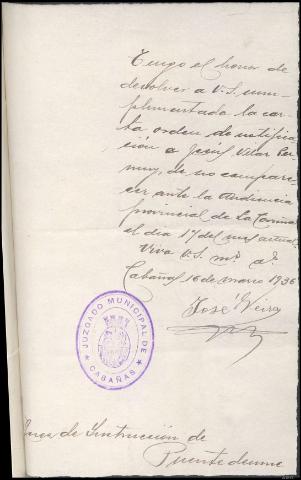 Tengo el honor de
devolver a V.S. cum-
plimentada la car-
ta orden de notifica-
ción a Jesús Vilar Per-
muy, de no compare-
cer ante la Audiencia
provincial de La Coruña
el dia 17 del mes actual.
Viva V.S. m.s a.s
Cabañas 16 de marzo 1936
José Veiga
JUZGADO MUNICIPAL DE
CABAÑAS
Juez de Instrucción de
Puentedeume